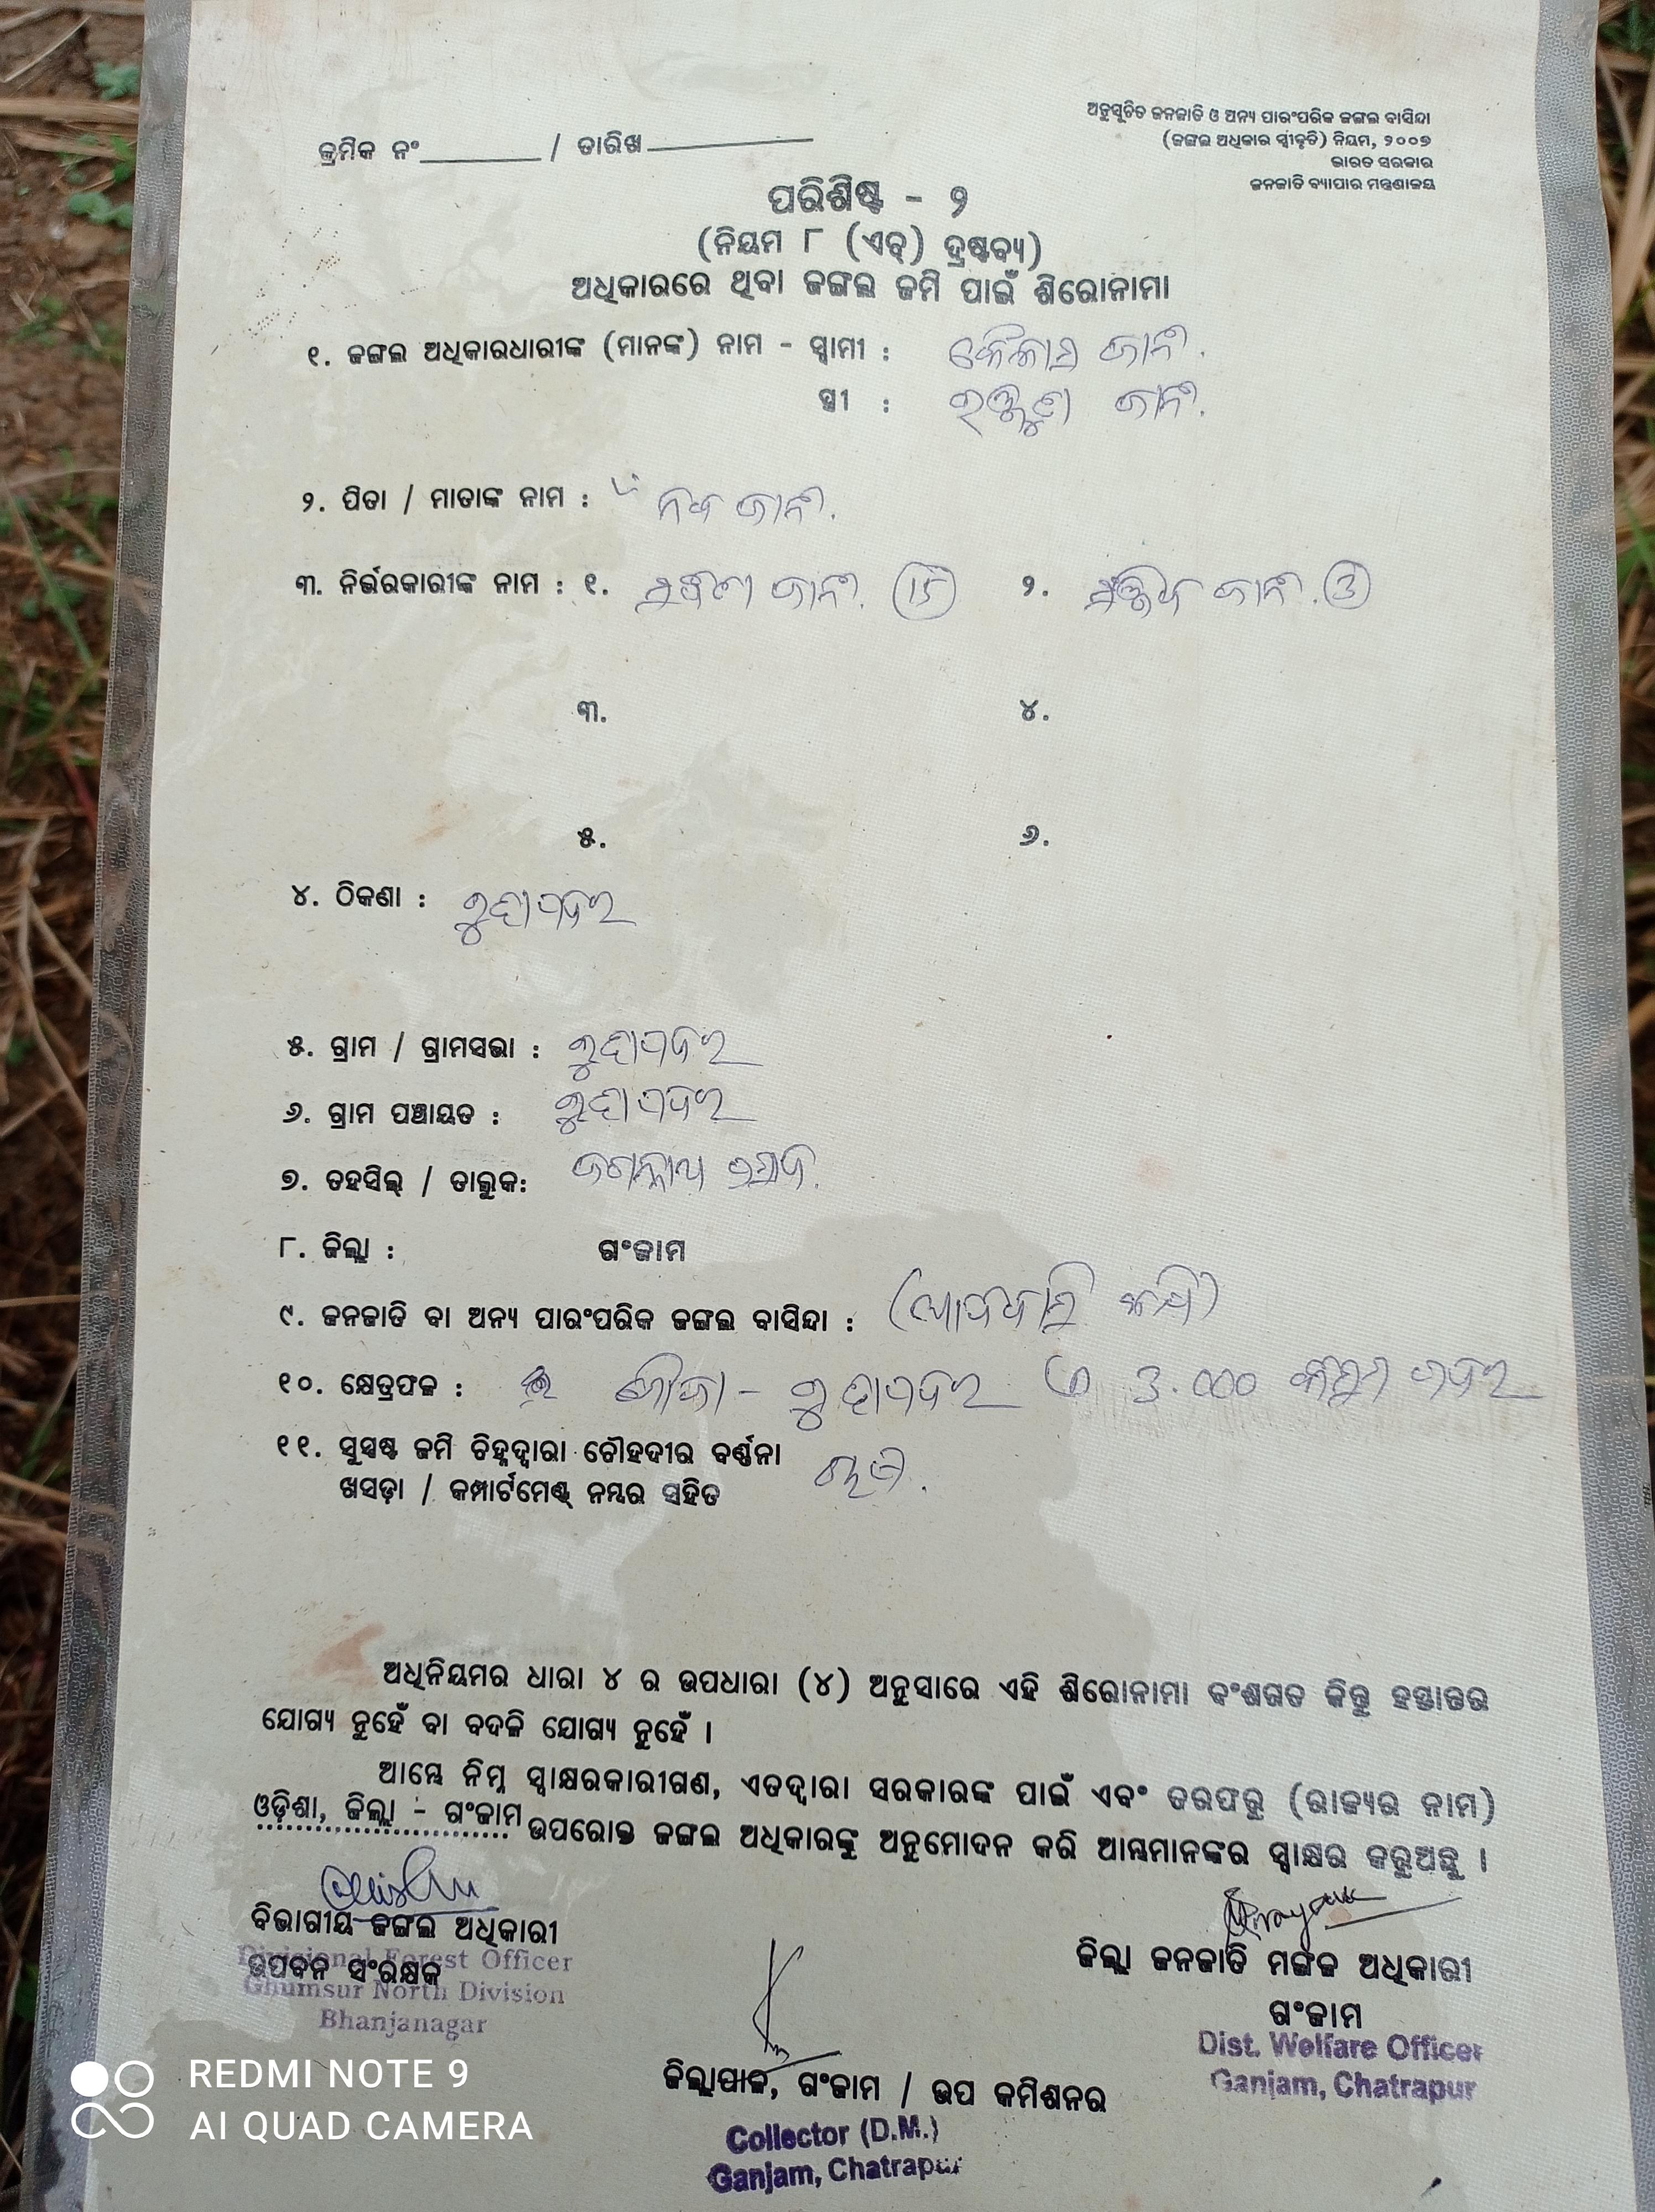 ଅନୁସୂଚିତ ଜନଜାତି ଓ ଅନ୍ୟ ପାରଂପରିକ ଜଙ୍ଗଲ ବାସିନ୍ଦା
(ଜଙ୍ଗଲ ଅଧିକାର ସ୍ୱୀକୃତି) ନିୟମ, ୨୦୦୭
ଭାରତ ସରକାର
ଜନଜାତି ବ୍ୟାପାର ମନ୍ତ୍ରଣାଳୟ
କ୍ରମିକ ନଂ________ / ତାରିଖ___________
ପରିଶିଷ୍ଟ - ୨
(ନିୟମ ୮ (ଏଚ୍) ଦ୍ରଷ୍ଟବ୍ୟ)
ଅଧିକାରରେ ଥିବା ଜଙ୍ଗଲ ଜମି ପାଇଁ ଶିରୋନାମା
୧. ଜଙ୍ଗଲ ଅଧିକାରଧାରୀଙ୍କ (ମାନଙ୍କ) ନାମ - ସ୍ୱାମୀ : ଜାନି.
ସ୍ତ୍ରୀ : ଜାନି.
୨. ପିତା / ମାତାଙ୍କ ନାମ : ଜାନି.
୩. ନିର୍ଭରକାରୀଙ୍କ ନାମ : ୧. ଜାନି. 15 ୨. ଜାନି. 3
୩. ୪.
୫. ୬.
୪. ଠିକଣା :
୫. ଗ୍ରାମ / ଗ୍ରାମସଭା :
୬. ଗ୍ରାମ ପଞ୍ଚାୟତ :
୭. ତହସିଲ୍ / ତାଲୁକ: ଜଗନ୍ନାଥ ପ୍ରସାଦ.
୮. ଜିଲ୍ଲା : ଗଂଜାମ
୯. ଜନଜାତି ବା ଅନ୍ୟ ପାରଂପରିକ ଜଙ୍ଗଲ ବାସିନ୍ଦା :
୧୦. କ୍ଷେତ୍ରଫଳ : ମୌଜା -
୧୧. ସୁସ୍ପଷ୍ଟ ଜମି ଚିହ୍ନଦ୍ୱାରା ଚୌହଦୀର ବର୍ଣ୍ଣନା
ଖସଡ଼ା / କମ୍ପାର୍ଟମେଣ୍ଟ୍ ନମ୍ବର ସହିତ
ଅଧିନିୟମର ଧାରା ୪ ର ଉପଧାରା (୪) ଅନୁସାରେ ଏହି ଶିରୋନାମା ବଂଶଗତ କିନ୍ତୁ ହସ୍ତାନ୍ତର
ଯୋଗ୍ୟ ନୁହେଁ ବା ବଦଳି ଯୋଗ୍ୟ ନୁହେଁ ।
ଆମ୍ଭେ ନିମ୍ନ ସ୍ୱାକ୍ଷରକାରୀଗଣ, ଏତଦ୍ୱାରା ସରକାରଙ୍କ ପାଇଁ ଏବଂ ତରଫରୁ (ରାଜ୍ୟର ନାମ)
ଓଡ଼ିଶା, ଜିଲ୍ଲା - ଗଂଜାମ ଉପରୋକ୍ତ ଜଙ୍ଗଲ ଅଧିକାରଙ୍କୁ ଅନୁମୋଦନ କରି ଆମ୍ଭମାନଙ୍କର ସ୍ୱାକ୍ଷର କରୁଅଛୁ ।
ବିଭାଗୀୟ ଜଙ୍ଗଲ ଅଧିକାରୀ
ଉପବନ ସଂରକ୍ଷକ
Divisional Forest Officer
Ghumsur North Division
Bhanjanagar
ଜିଲ୍ଲା ଜନଜାତି ମଙ୍ଗଳ ଅଧିକାରୀ
ଗଂଜାମ
Dist. Welfare Officer
Ganjam, Chatrapur
ଜିଲ୍ଲାପାଳ, ଗଂଜାମ / ଉପ କମିଶନର
Collector (D.M.)
Ganjam, Chatrapur
REDMI NOTE 9
AI QUAD CAMERA